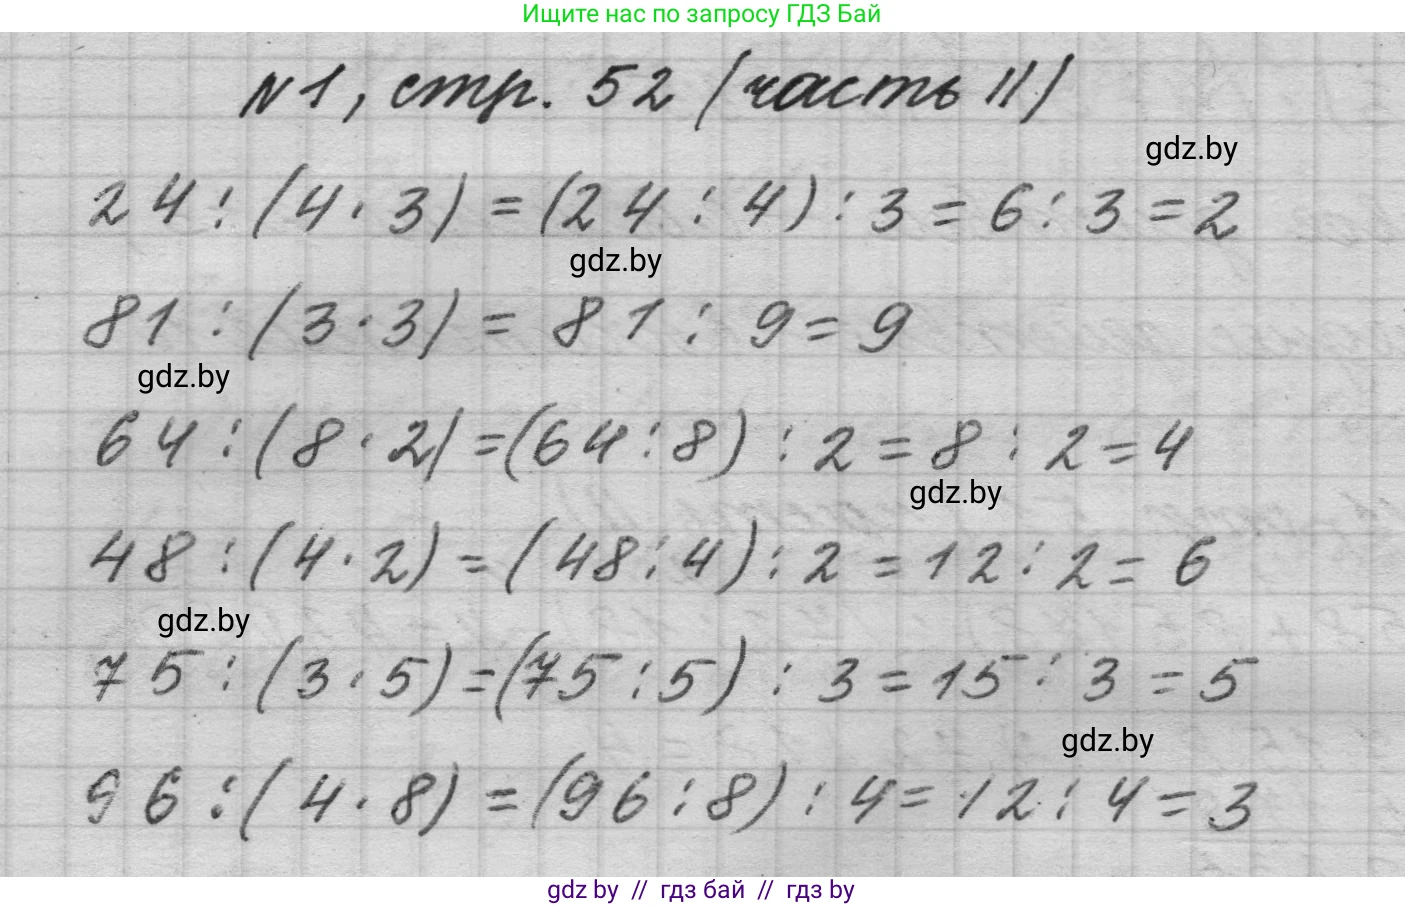 Ищите нас по запросу ГДЗ Бай
№1, стр. 52 (часть II)
gdz.by
24 : (4 · 3) = (24 : 4) : 3 = 6 : 3 = 2
gdz.by
81 : (3 · 3) = 81 : 9 = 9
gdz.by
64 : (8 · 2) = (64 : 8) : 2 = 8 : 2 = 4
gdz.by
48 : (4 · 2) = (48 : 4) : 2 = 12 : 2 = 6
gdz.by
75 : (3 · 5) = (75 : 5) : 3 = 15 : 3 = 5
gdz.by
96 : (4 · 8) = (96 : 8) : 4 = 12 : 4 = 3
gdz by // гдз бай // гдз by